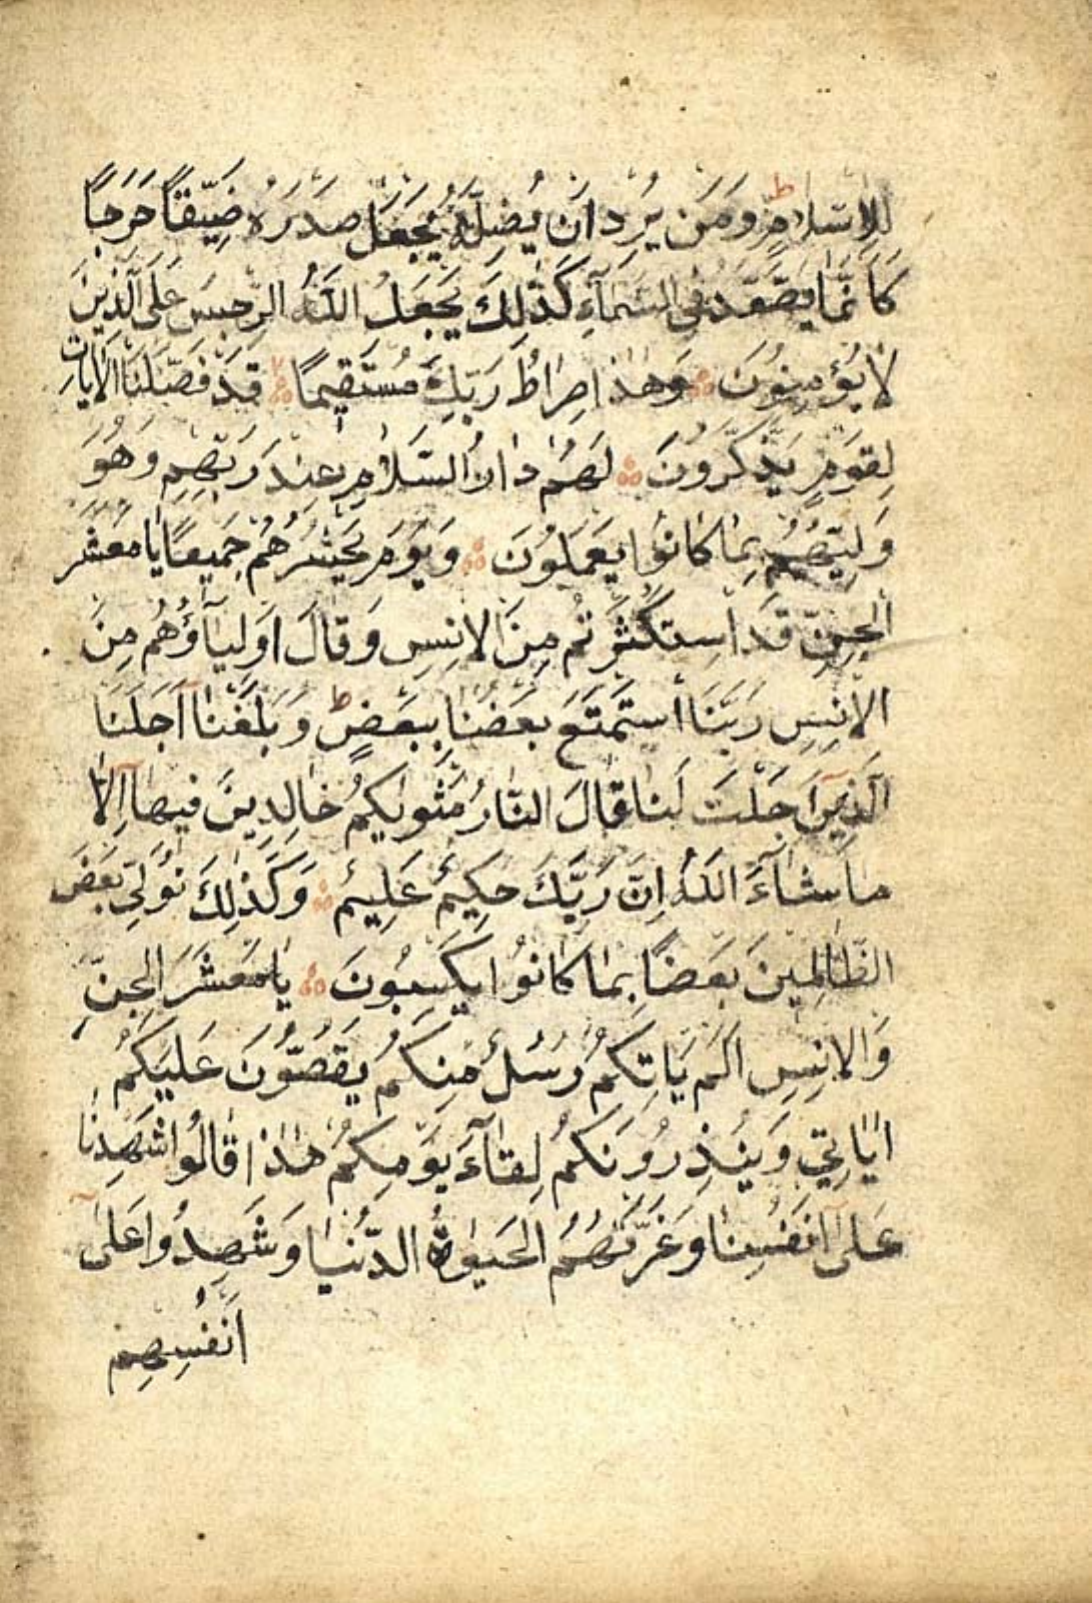 لِلْاِسْلَامِ ط وَمَنْ يُرِدْ اَنْ يُضِلَّهُ يَجْعَلْ صَدْرَهُ ضَيِّقًا حَرَجًا
كَاَنَّمَا يَصَّعَّدُ فِى السَّمَآءِ كَذٰلِكَ يَجْعَلُ اللّٰهُ الرِّجْسَ عَلَى الَّذِينَ
لَا يُؤْمِنُونَ وَهٰذَا صِرَاطُ رَبِّكَ مُسْتَقِيمًا قَدْ فَصَّلْنَا الْاٰيَاتِ
لِقَوْمٍ يَذَّكَّرُونَ لَهُمْ دَارُ السَّلَامِ عِنْدَ رَبِّهِمْ وَهُوَ
وَلِيُّهُمْ بِمَا كَانُوا يَعْمَلُونَ وَيَوْمَ يَحْشُرُهُمْ جَمِيعًا يَا مَعْشَرَ
الْجِنِّ قَدِ اسْتَكْثَرْتُمْ مِنَ الْاِنْسِ وَقَالَ اَوْلِيَآؤُهُمْ مِنَ
الْاِنْسِ رَبَّنَا اسْتَمْتَعَ بَعْضُنَا بِبَعْضٍ ط وَبَلَغْنَا اَجَلَنَا
الَّذِى اَجَّلْتَ لَنَا قَالَ النَّارُ مَثْوٰيكُمْ خَالِدِينَ فِيهَا اِلَّا
مَا شَآءَ اللّٰهُ اِنَّ رَبَّكَ حَكِيمٌ عَلِيمٌ وَكَذٰلِكَ نُوَلِّى بَعْضَ
الظَّالِمِينَ بَعْضًا بِمَا كَانُوا يَكْسِبُونَ يَا مَعْشَرَ الْجِنِّ
وَالْاِنْسِ اَلَمْ يَاْتِكُمْ رُسُلٌ مِنْكُمْ يَقُصُّونَ عَلَيْكُمْ
اٰيَاتِى وَيُنْذِرُونَكُمْ لِقَآءَ يَوْمِكُمْ هٰذَا قَالُوا شَهِدْنَا
عَلٰى اَنْفُسِنَا وَغَرَّتْهُمُ الْحَيٰوةُ الدُّنْيَا وَشَهِدُوا عَلٰى
اَنْفُسِهِمْ